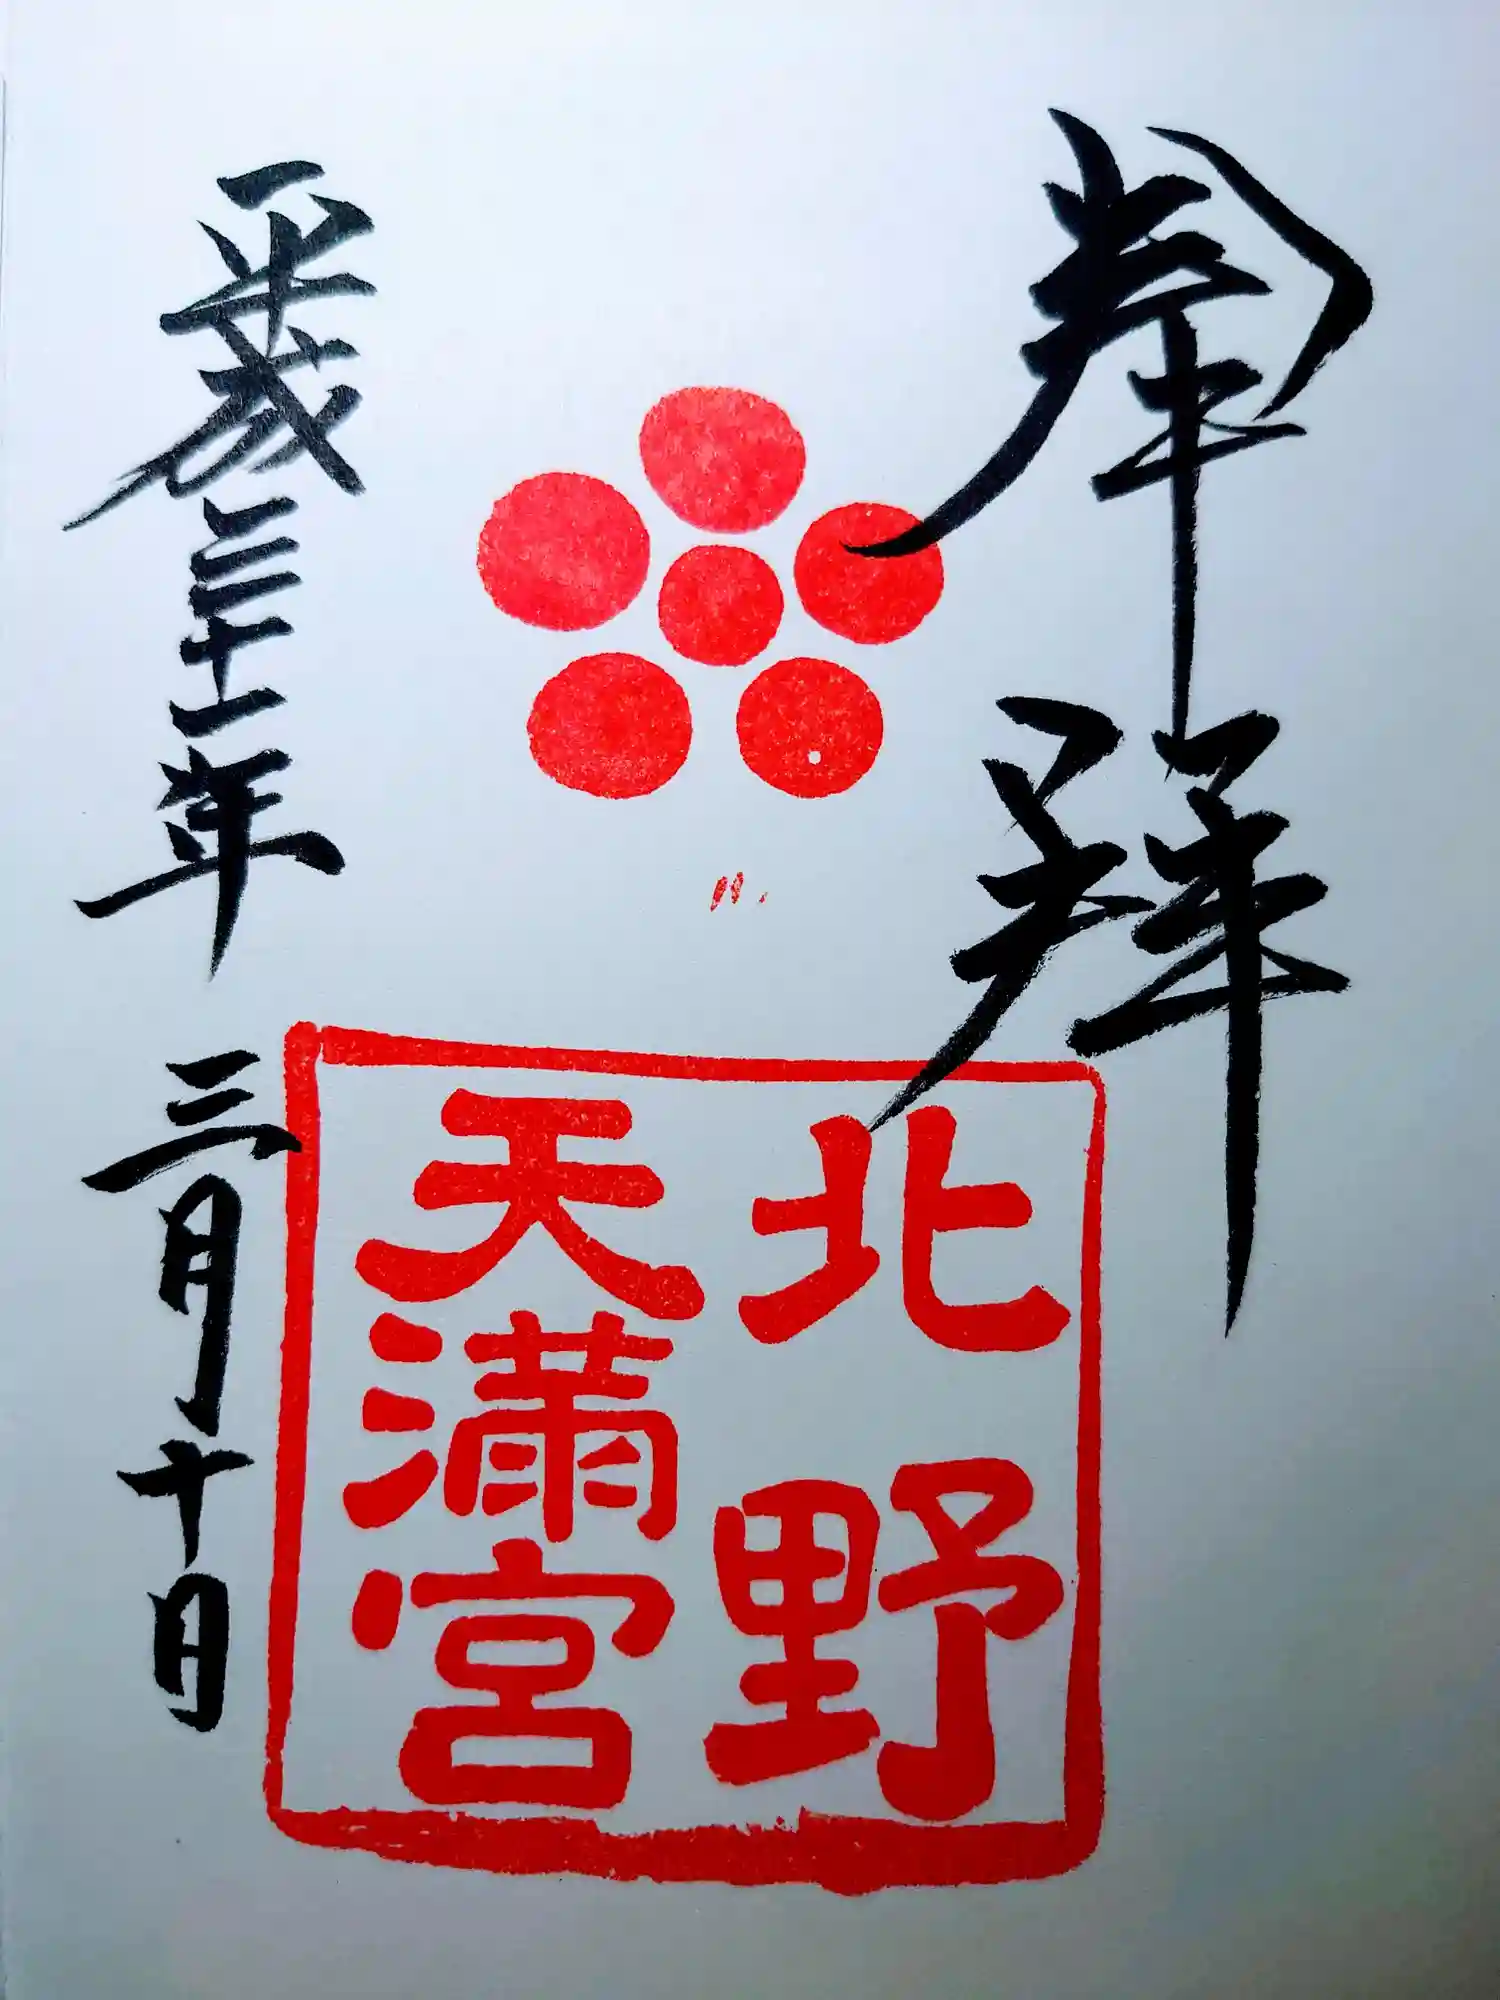 奉拜
北野
天満宮
平成三十一年 三月十日